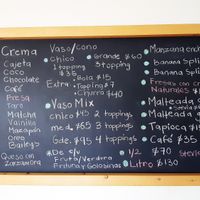 Crema
Cajeta
Coco
Chocolate
Café
Fresa
Taro
Matcha
Vainilla
Mazapán
Oreo
Baileys
Queso con
Zarzamora
Vaso/Cono
Chico Grande $60
1 topping 3 topping
$35
Extra: Bola $15
Topping $7
Churro $40
Vaso Mix
chico $45 2 toppings
med. $65 3 toppings
Gde. $95 4 toppings
*De s/v
Fruta/Verdura
Frituras y Golosinas
Manzana
Banana Spli
Banana Spl
Fresas con
Naturales
Malteada
Malteada
Tapioca
Café $35
1/2 $70
Litro $130